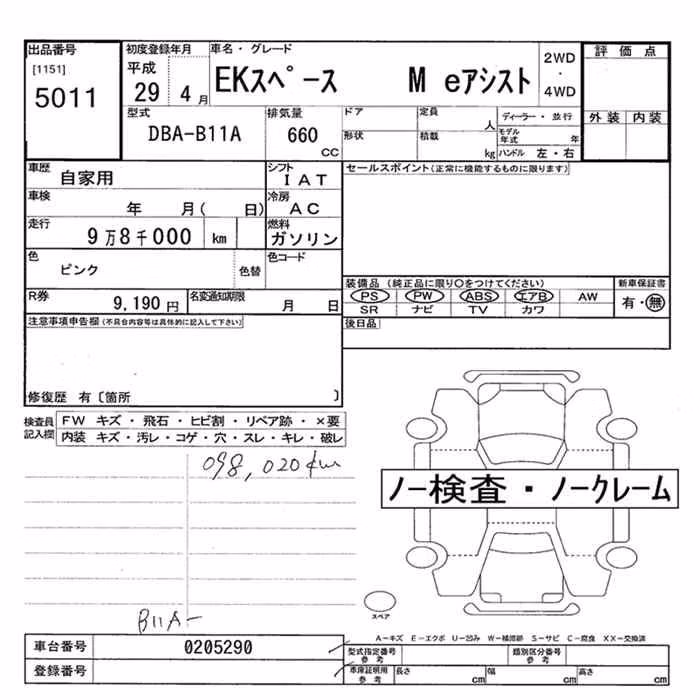 出品番号 初度登録年月 車名・グレード 2WD・4WD 評価点
[1151] 平成 EKスペース M eアシスト
5011 29 4月
型式 排気量 ドア 定員 人 ディーラー・並行 外装 内装
DBA-B11A 660 CC 形状 積載 kg モデル年式 年
ハンドル 左・右
車歴 自家用 シフト IAT セールスポイント(正常に機能するものに限ります)
車検 年 月( 日) 冷房 AC
走行 9万8千000 km 燃料 ガソリン
色 ピンク 色替 色コード
装備品 (純正品に限り○をつけてください) 新車保証書
R券 9,190円 名変通知期限 月 日 PS PW ABS エアB AW 有・無
SR ナビ TV カワ
注意事項申告欄(不具合内容等は具体的に記入して下さい) 後日品
修復歴 有〔箇所 〕
検査員記入欄 FW キズ・飛石・ヒビ割・リペア跡・×要
内装 キズ・汚レ・コゲ・穴・スレ・キレ・破レ
098,020km
ノー検査・ノークレーム
B11A-
スペア
A-キズ E-エクボ U-凹み W-補修跡 S-サビ C-腐食 XX-交換済
車台番号 0205290 型式指定番号 参考 類別区分番号 参考
登録番号 車庫証明用 参考 長さ cm 幅 cm 高さ cm